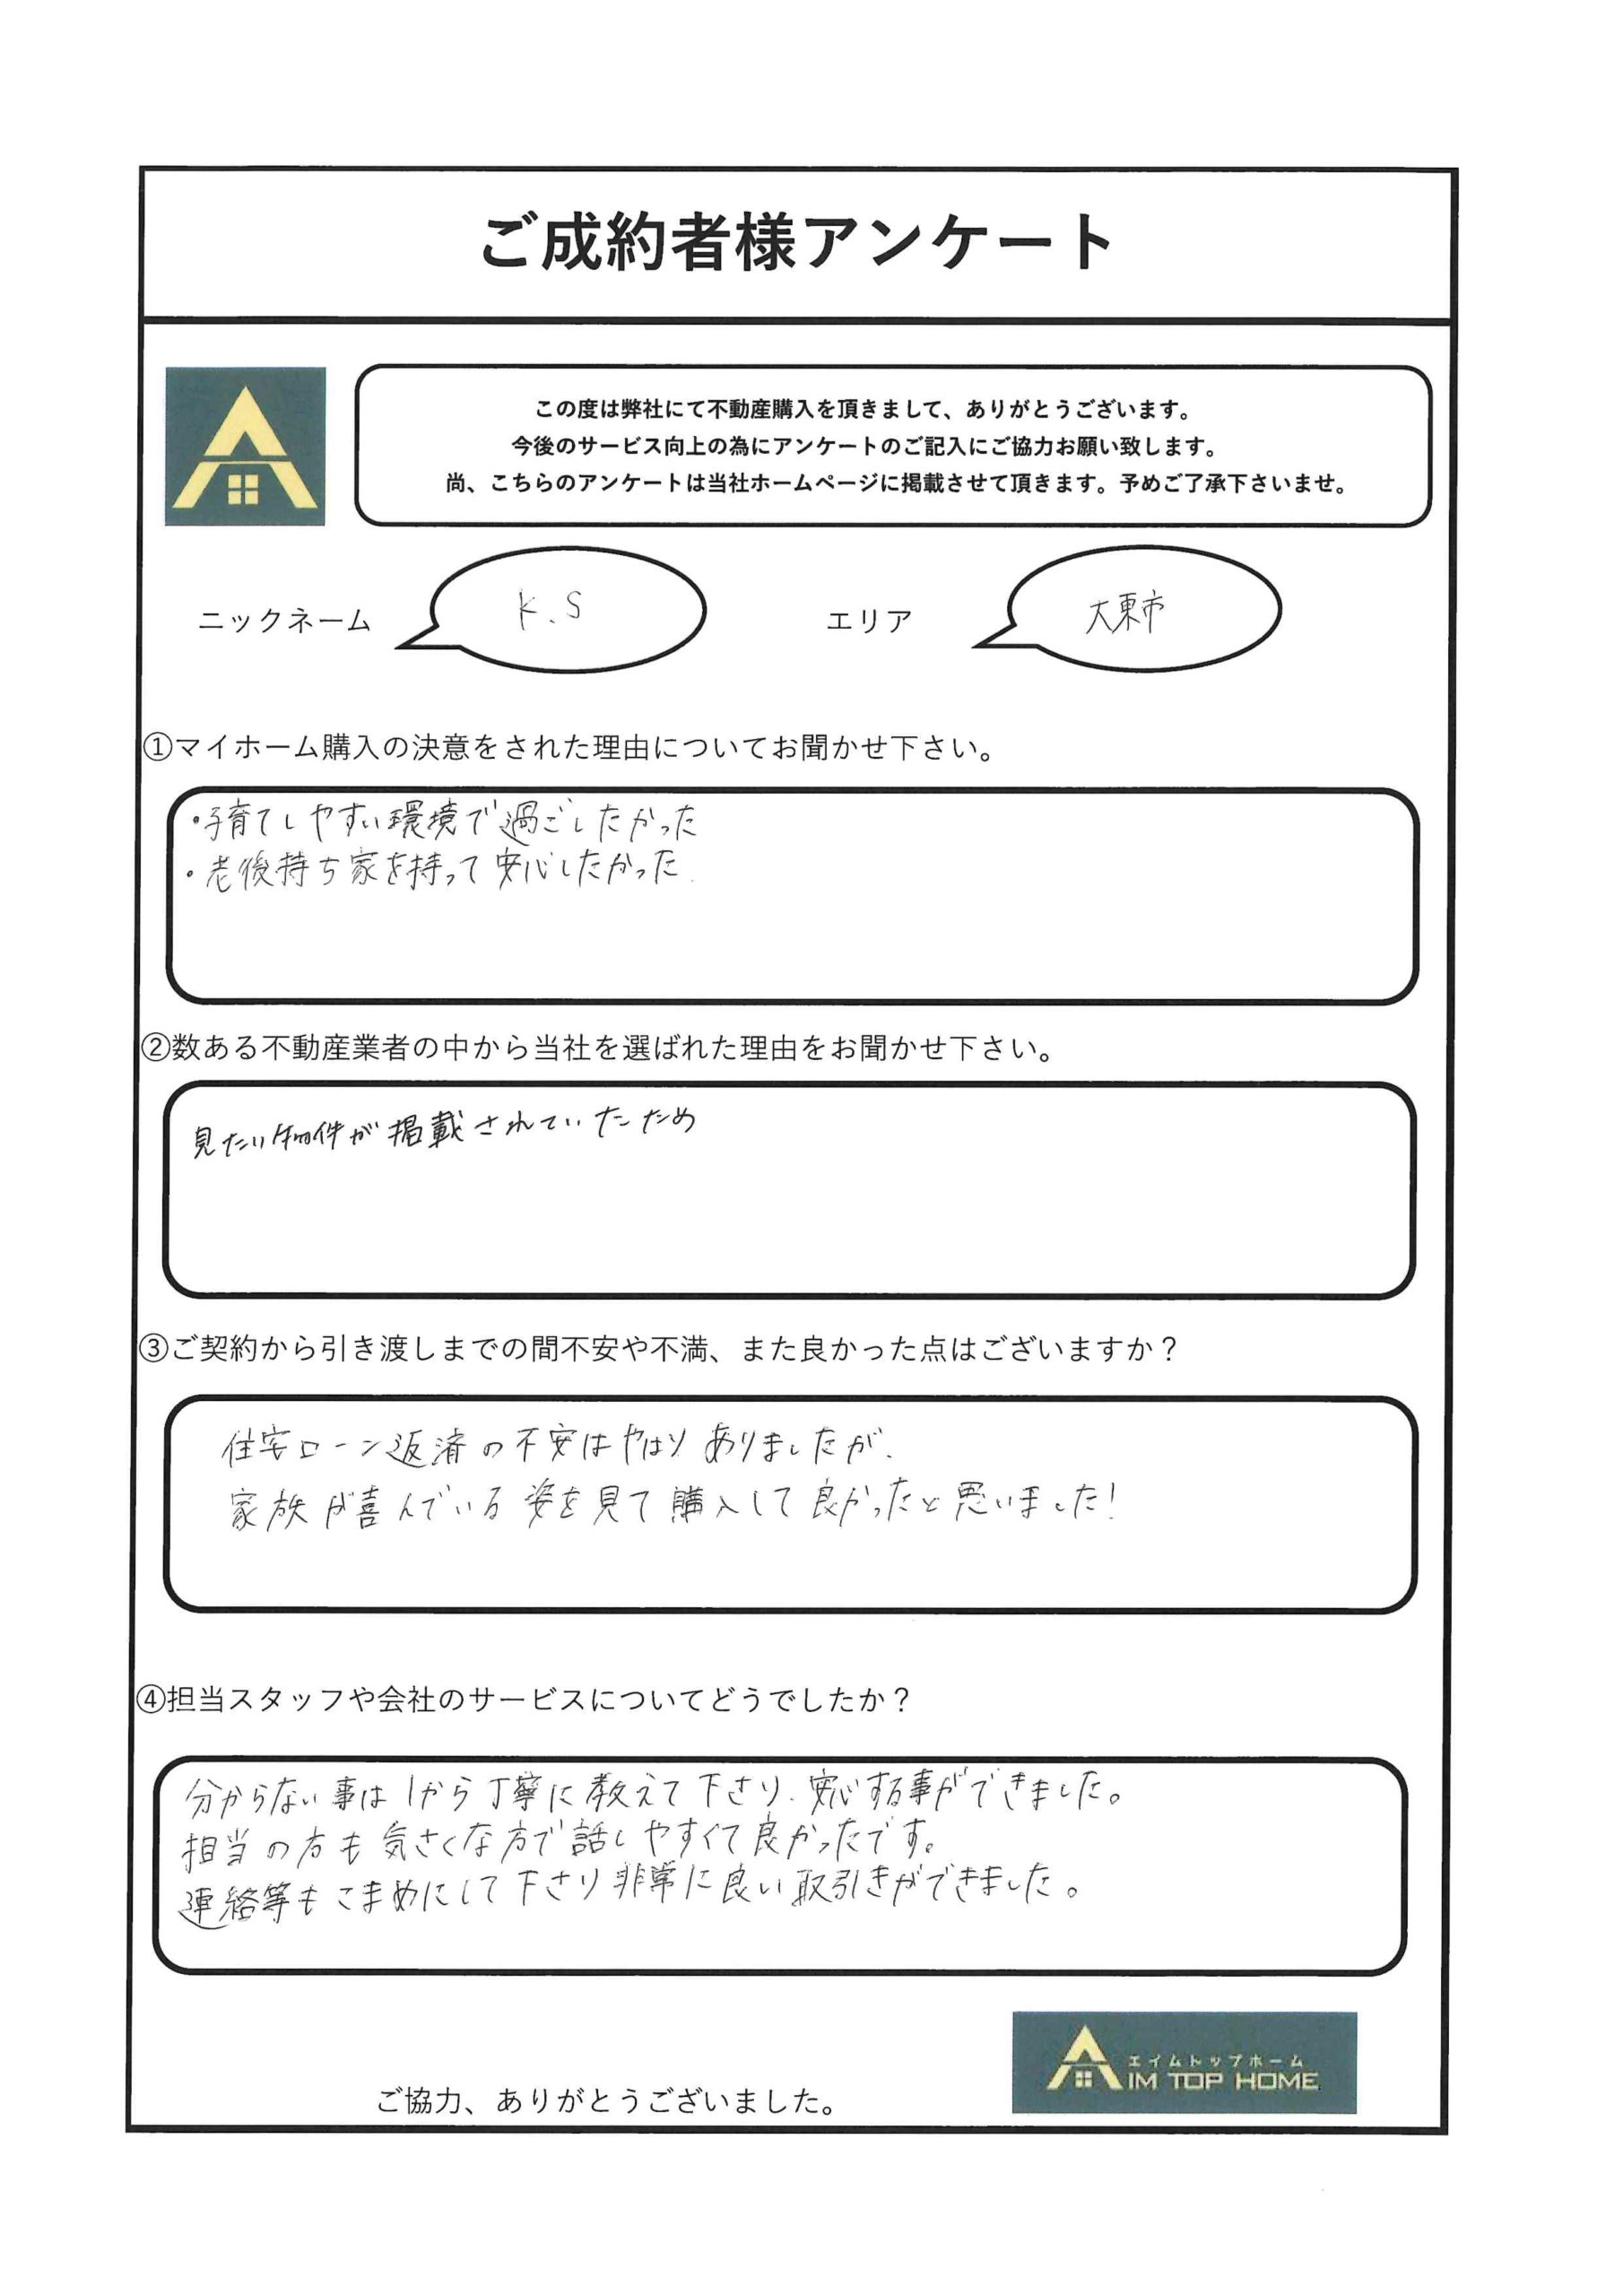 ご成約者様アンケート
この度は弊社にて不動産購入を頂きまして、ありがとうございます。
今後のサービス向上の為にアンケートのご記入にご協力お願い致します。
尚、こちらのアンケートは当社ホームページに掲載させて頂きます。予めご了承下さいませ。
ニックネーム K.S エリア 大東市
①マイホーム購入の決意をされた理由についてお聞かせ下さい。
・子育てしやすい環境で過ごしたかった
・老後持ち家を持って安心したかった.
②数ある不動産業者の中から当社を選ばれた理由をお聞かせ下さい。
見たい物件が掲載されていたため
③ご契約から引き渡しまでの間不安や不満、また良かった点はございますか？
住宅ローン返済の不安はやはりありましたが、
家族が喜んでいる姿を見て購入して良かったと思いました!
④担当スタッフや会社のサービスについてどうでしたか？
分からない事は1から丁寧に教えて下さり、安心する事ができました。
担当の方も気さくな方で話しやすくて良かったです。
連絡等もこまめにして下さり非常に良い取引きができました。
エイムトップホーム
AIM TOP HOME
ご協力、ありがとうございました。